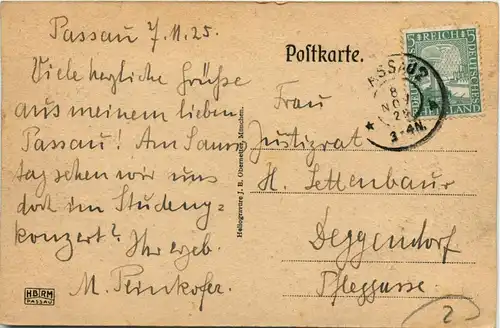 Passau 7.11.25.
Viele herzliche Grüße
aus meinem lieben
Passau! Am Sams
tag sehen wir uns
dort im
konzert? Ihr ergeb.
M.
HB RM
PASSAU
Heliogravüre J. B. Obernetter, München.
Postkarte.
Frau
Justizrat
H.
Deggendorf
Pfleggasse
5 REICH 5
DEUTSCHES
PASSAU 2
8
NOV
3-4N.
2